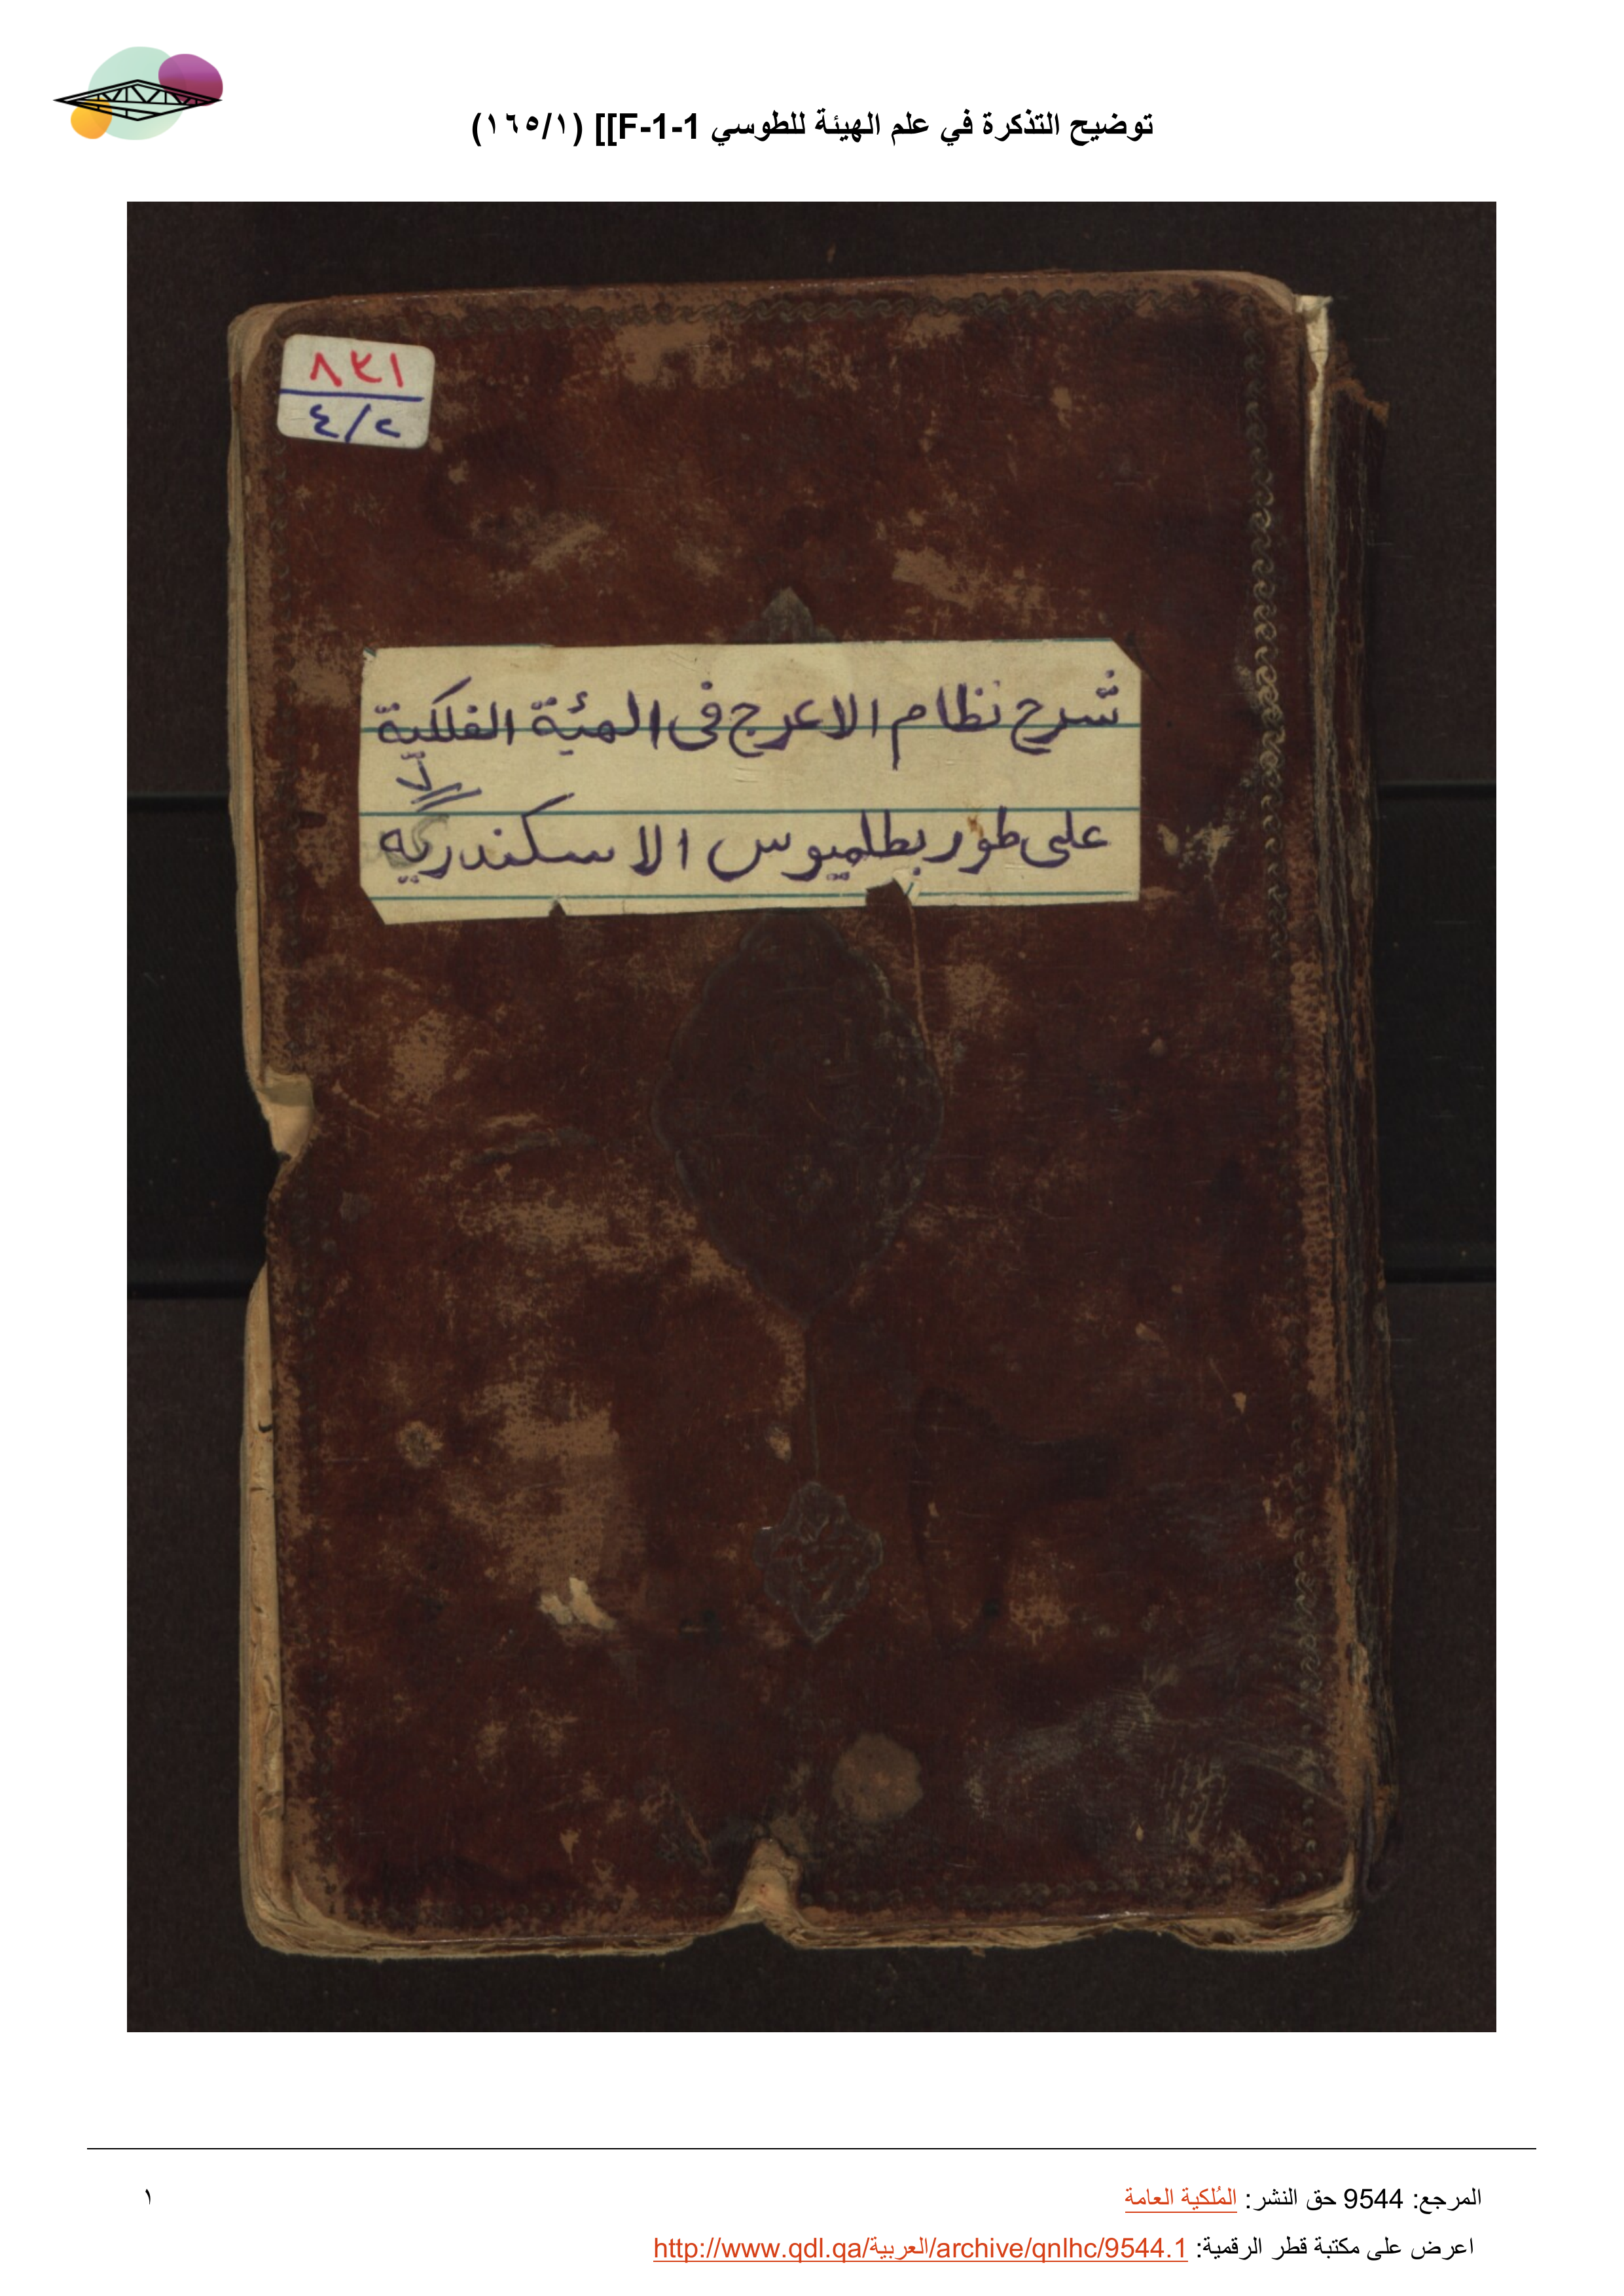 توضيح التذكرة في علم الهيئة للطوسي F-1-1]] (١٦٥/١)
٨٢١
٤/٢
شرح نظام الاعرج فى الهيئة الفلكية
على طور بطلميوس الاسكندريه
المرجع: 9544 حق النشر: المُلكية العامة
١
اعرض على مكتبة قطر الرقمية: http://www.qdl.qa/العربية/archive/qnlhc/9544.1